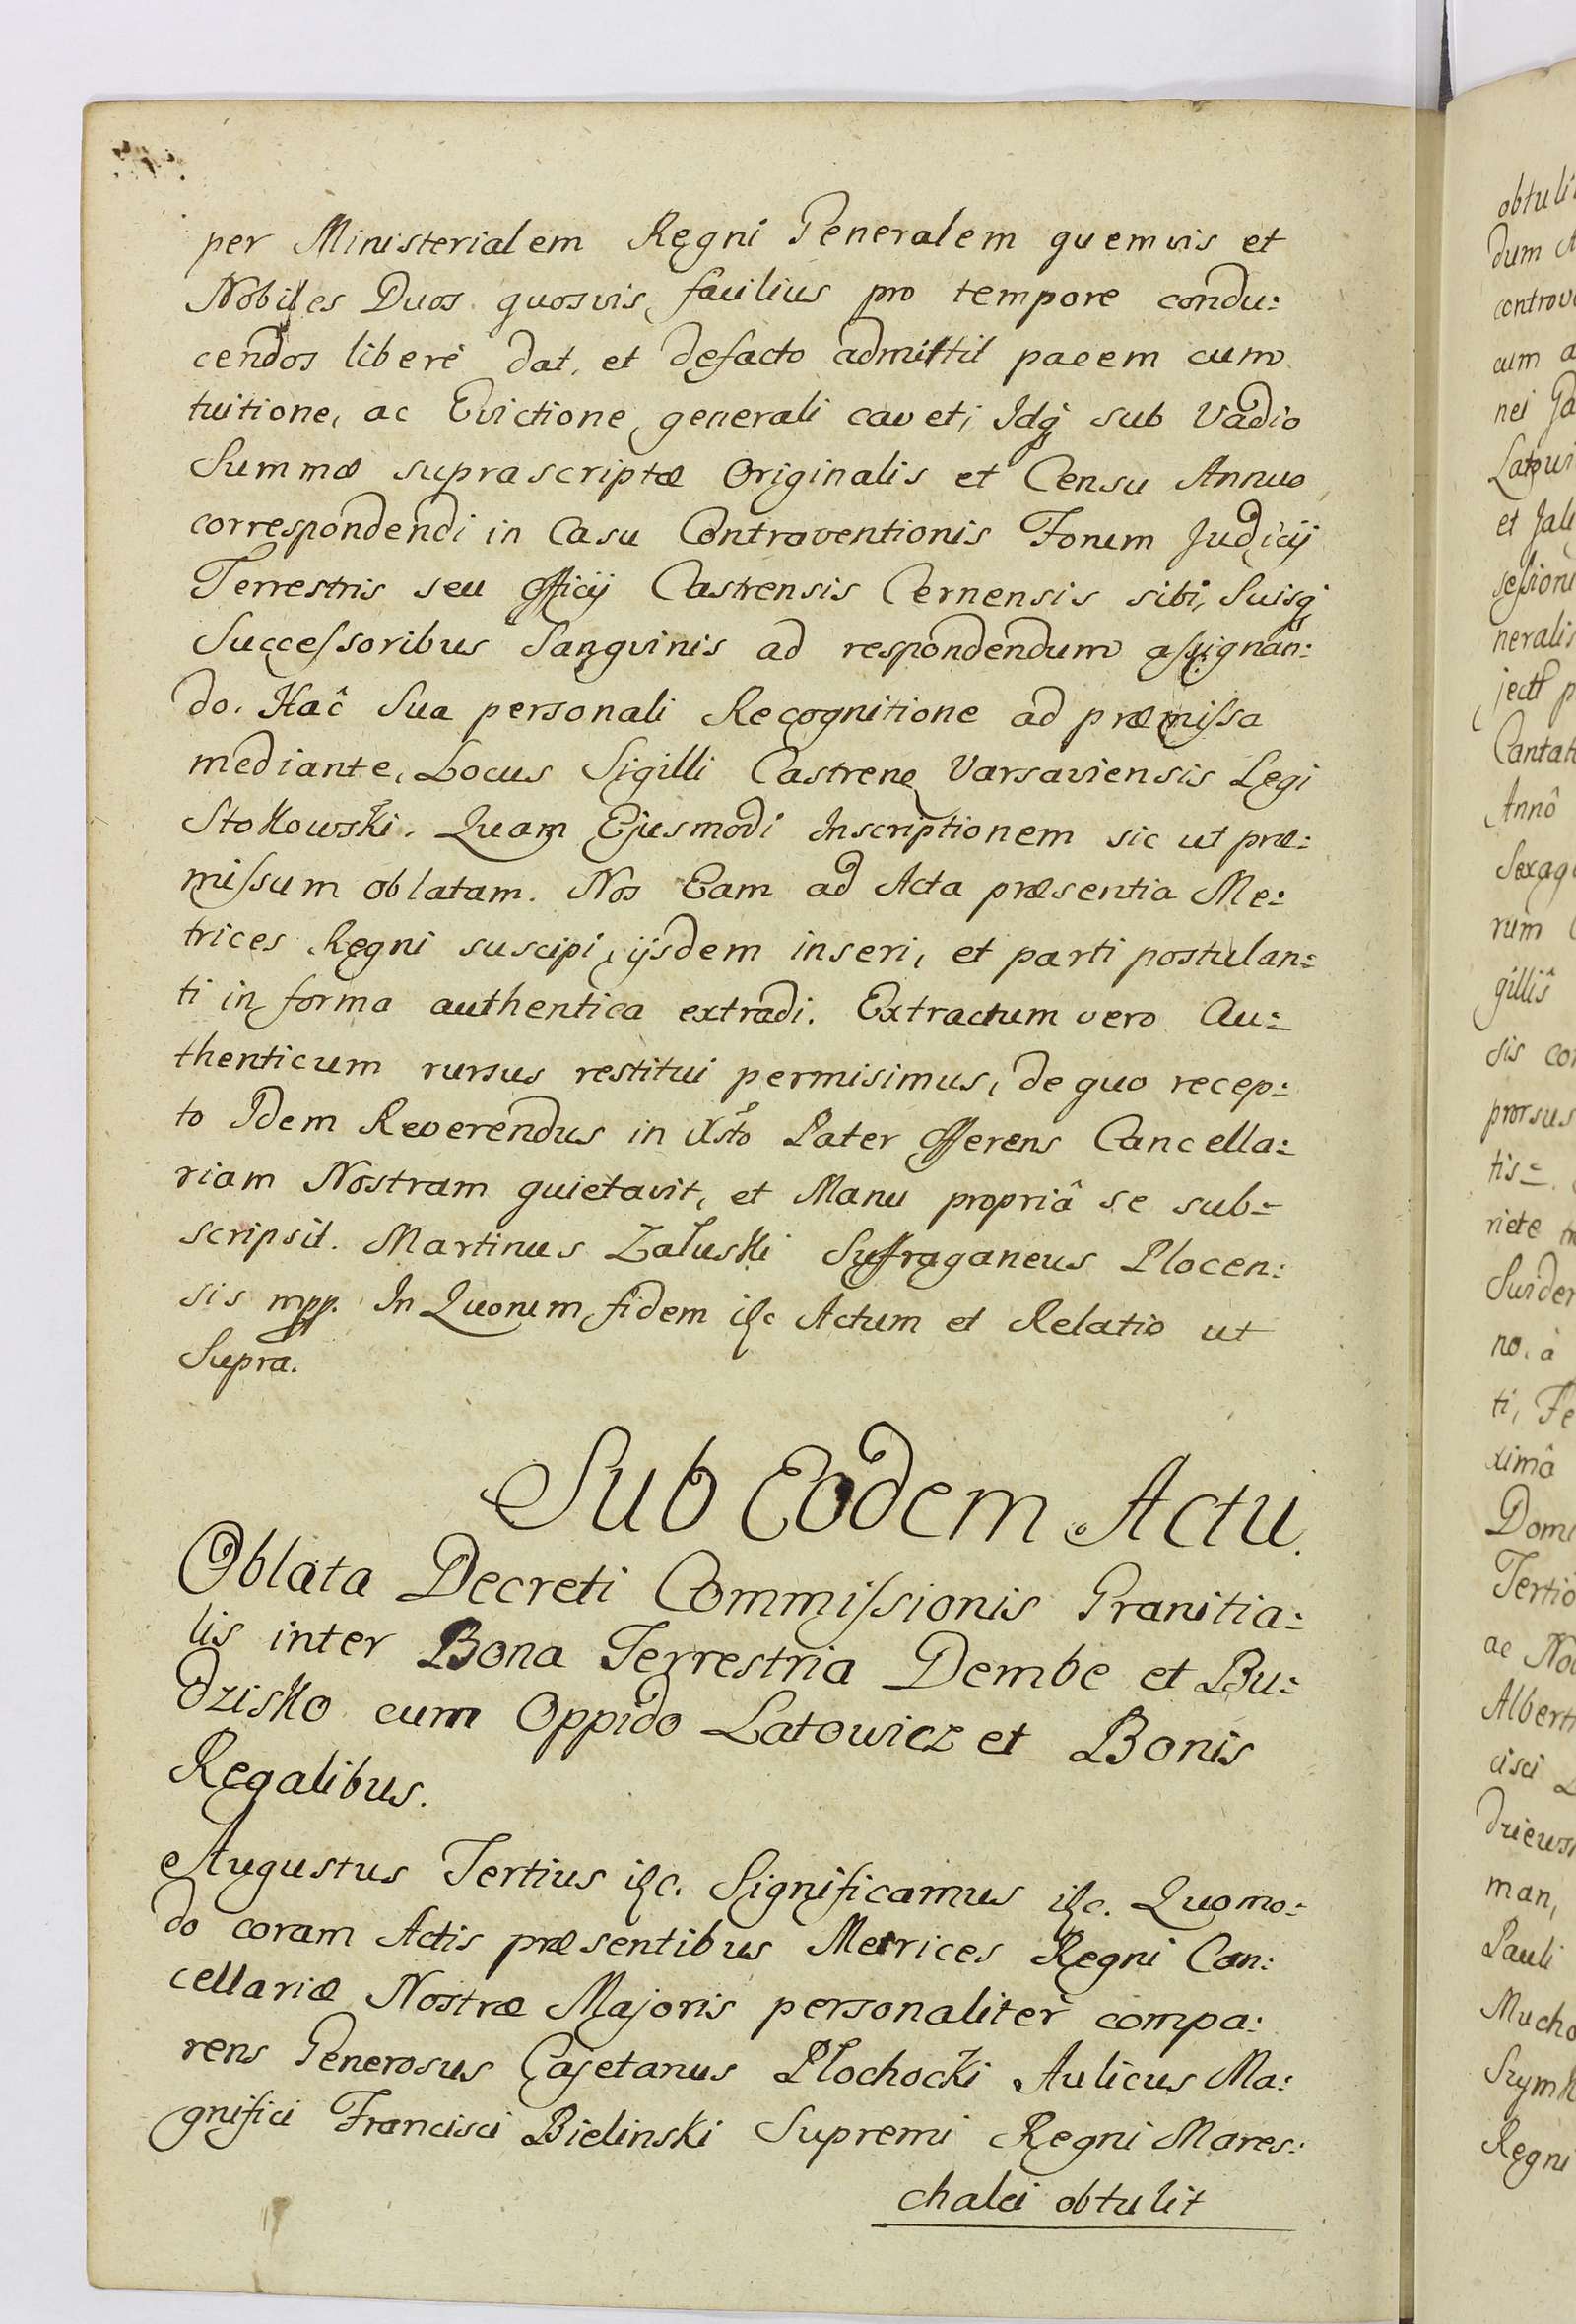 per Ministerialem Regni Generalem quemvis et
Nobiles Duos quosvis, facilius pro tempore condu:
cendos liberè dat, et defacto admittit pacem cum
tuitione, ac Evictione generali cavet, Idq sub Vadio
Summæ suprascriptæ Originalis et Censu Annuo,
correspondendi in Casu Contraventionis Forum Judicij
Terrestris seu Officij Castrensis Cernensis sibi, Suisq
Successoribus Sangvinis ad respondendum assignan:
do. Hac̑ Sua personali Recognitione ad præmissa
mediante, Locus Sigilli Castrene Varsaviensis Legi
Stokowski. Quam Ejusmodi Inscriptionem sic ut præ:
missum oblatam. Nos Eam ad Acta præsentia Me:
trices Regni suscipi, ijsdem inseri, et parti postulan:
ti in forma authentica extradi. Extractum vero Au:
thenticum rursus restitui permisimus, de quo recep:
to Idem Reverendus in Xsto Pater Offerens Cancella:
riam Nostram quietavit, et Manu propriâ se sub:
scripsit. Martinus Załuski Suffraganeus Plocen:
sis mpp. In Quorum fidem &c Actum et Relatio ut
Supra.
Sub Eodem Actu.
Oblata Decreti Commissionis Granitia:
lis inter Bona Terrestria Dembe et Bu:
dzisko cum Oppido Latowicz et Bonis
Regalibus.
Augustus Tertius &c. Significamus &c. Quomo:
do coram Actis præsentibus Metrices Regni Can:
cellariæ Nostræ Majoris personaliter compa:
rens Generosus Cajetanus Płochocki Aulicus Ma:
gnifici Francisci Bielinski Supremi Regni Mares:
chalci obtulit
obtuli
dum
controv
cum a
nei
Latowi
et
sessioni
neralis
ject p
Cantat
Annô
Sexag
rum
gillis̑
sis con
prorsus
tis
riete
Suider
no. à
ti, Fe
ximâ
Domi
Tertiô
ac No
Albert
cisci
driews
man,
Pauli
Mucho
Szymk
Regni